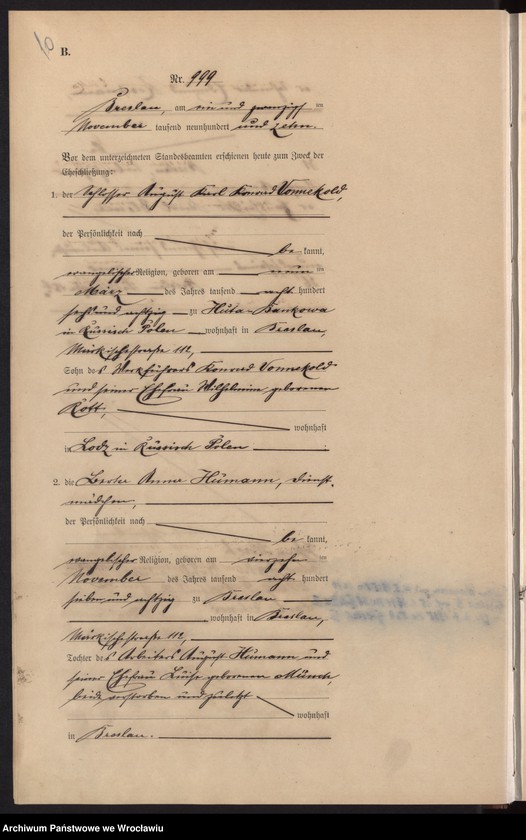 10
B.
Nr. 999
Breslau, am ein und zwanzigsten
November tausend neunhundert und zehn.
Vor dem unterzeichneten Standesbeamten erschienen heute zum Zweck der
Eheschließung:
1. der Schlosser August Karl Konrad Vonnekold,
der Persönlichkeit nach
be kannt,
evangelischer Religion, geboren am neunten
März des Jahres tausend acht hundert
sechs und achtzig zu Huta-Bankowa
in Russisch Polen wohnhaft in Breslau,
Märkischestrasse 112,
Sohn des Werkführers Konrad Vonnekold
und seiner Ehefrau Wilhelmine geborenen
Rott,
wohnhaft
in Lodz in Russisch Polen
2. die Berta Anna Humann, Dienst-
mädchen,
der Persönlichkeit nach
be kannt,
evangelischer Religion, geboren am vierzehnten
November des Jahres tausend acht hundert
sieben und achtzig zu Breslau
wohnhaft in Breslau,
Märkischestrasse 112,
Tochter des Arbeiters August Humann und
seiner Ehefrau Luise geborenen Münch,
beide verstorben und zuletzt
wohnhaft
in Breslau.
Archiwum Państwowe we Wrocławiu